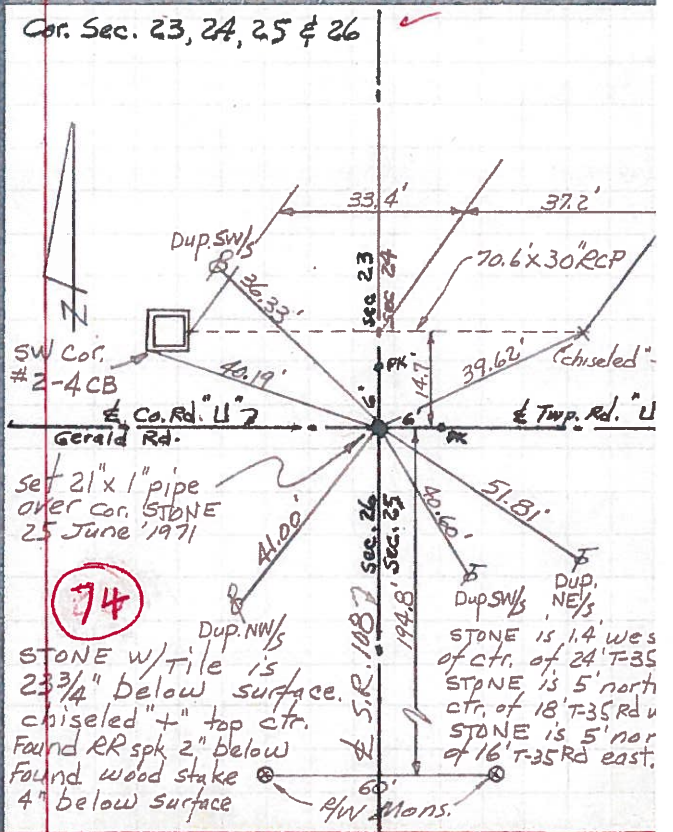 Cor. Sec. 23, 24, 25 & 26
33.4'
37.2'
Dup. SW/s
36.33'
Sec 23
Sec 24
70.6' x 30" RCP
SW Cor.
#2-4 CB
40.19'
PK
6'
14.7'
39.62'
(chiseled "-
℄ Co. Rd. "U"
Gerald Rd.
6'
PK
℄ Twp. Rd. "U
set 21" x 1" pipe
over Cor. STONE
25 June '1971
41.00'
Sec. 26
Sec. 25
40.60'
51.81'
74
Dup. NW/s
Dup SW/s
Dup.
NE/s
℄ S.R. 108
194.8'
STONE W/Tile is
23 3/4" below surface.
chiseled "+" top ctr.
Found RR spk 2" below
Found wood stake
4" below surface
STONE is 1.4' wes
of ctr. of 24' T-35
STONE is 5' nort
ctr. of 18' T-35 Rd w
STONE is 5' nor
of 16' T-35 Rd east.
60'
R/W Mons.
N